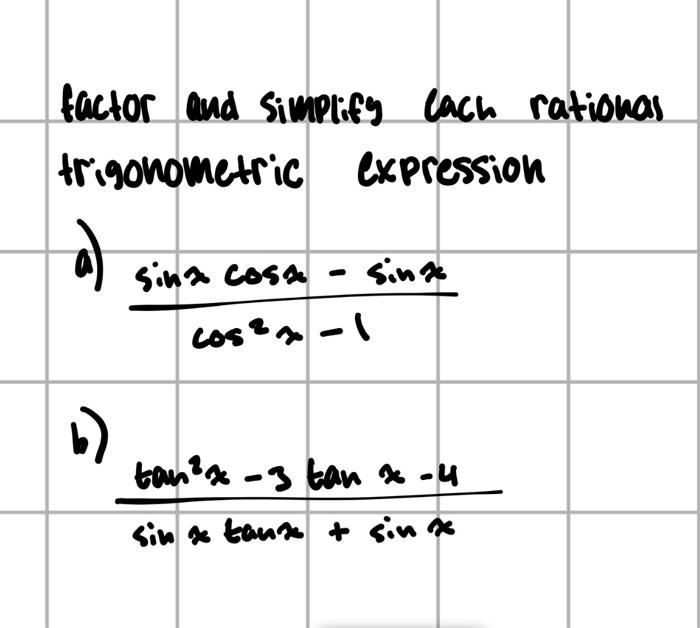 factor and simplify each rational
trigonometric expression
a) sinx cosx - sinx
cos²x - 1
b) tan²x - 3 tan x - 4
sin x tanx + sin x